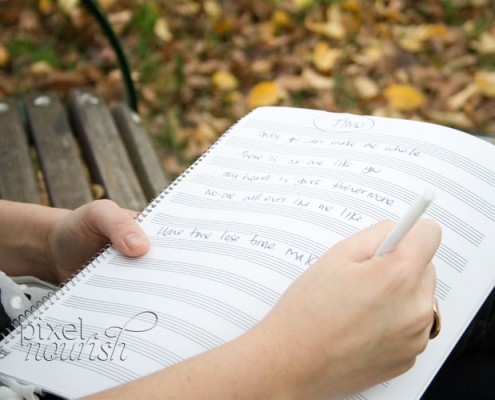 Only you can make me whole
There is no-one like you
My heart is yours forevermore
No-one will ever be like
love time lose time make
pixel
nourish